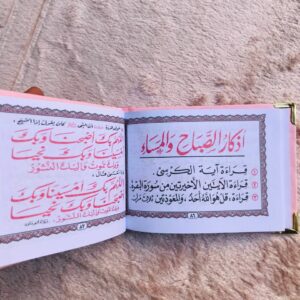 اذكار الصباح والمساء
١ قراءة آية الكرسى
٢ قراءة الآيتين الأخيرتين من سورة البقرة
٣ قراءة، قل هو الله أحد، والمعوذتين ثلاث مرات
٨٦
اللهم بك أصبحنا وبك
أمسينا وبك نحيا
وبك نموت وإليك النشور
اللهم بك أمسينا وبك
أصبحنا وبك نحيا
وبك نموت وإليك النشور